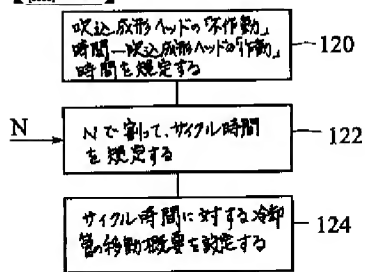 吹込成形ヘッドの「不作動」
時間−吹込成形ヘッドの「作動」
時間を規定する
120
N
Nで割って、サイクル時間
を規定する
122
サイクル時間に対する冷却
管の移動概要を設定する
124